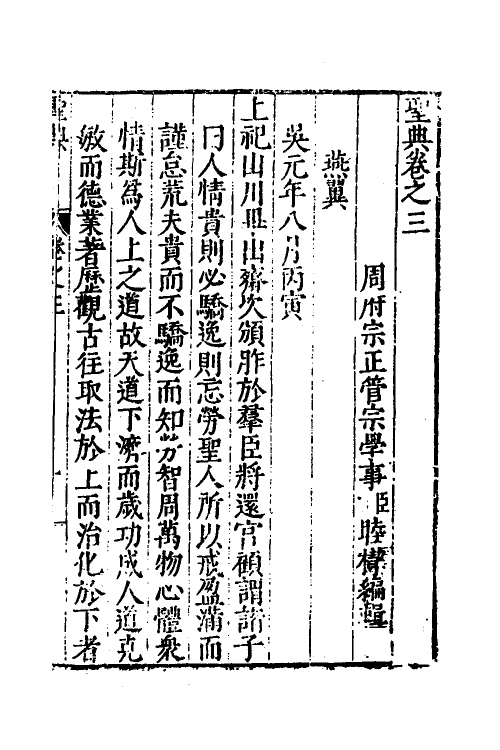 聖典卷之三
周府宗正管宗學事臣睦㮮編輯
燕翼
吳元年八月丙寅
上祀山川畢出齋次頒胙於羣臣將還宫顧謂諸子
曰人情貴則必驕逸則忘勞聖人所以戒盈滿而
謹怠荒夫貴而不驕逸而知勞智周萬物心體衆
情斯爲人上之道故天道下濟而歲功成人道克
敏而德業著歷觀古往取法於上而治化於下者
聖典 卷之三 一